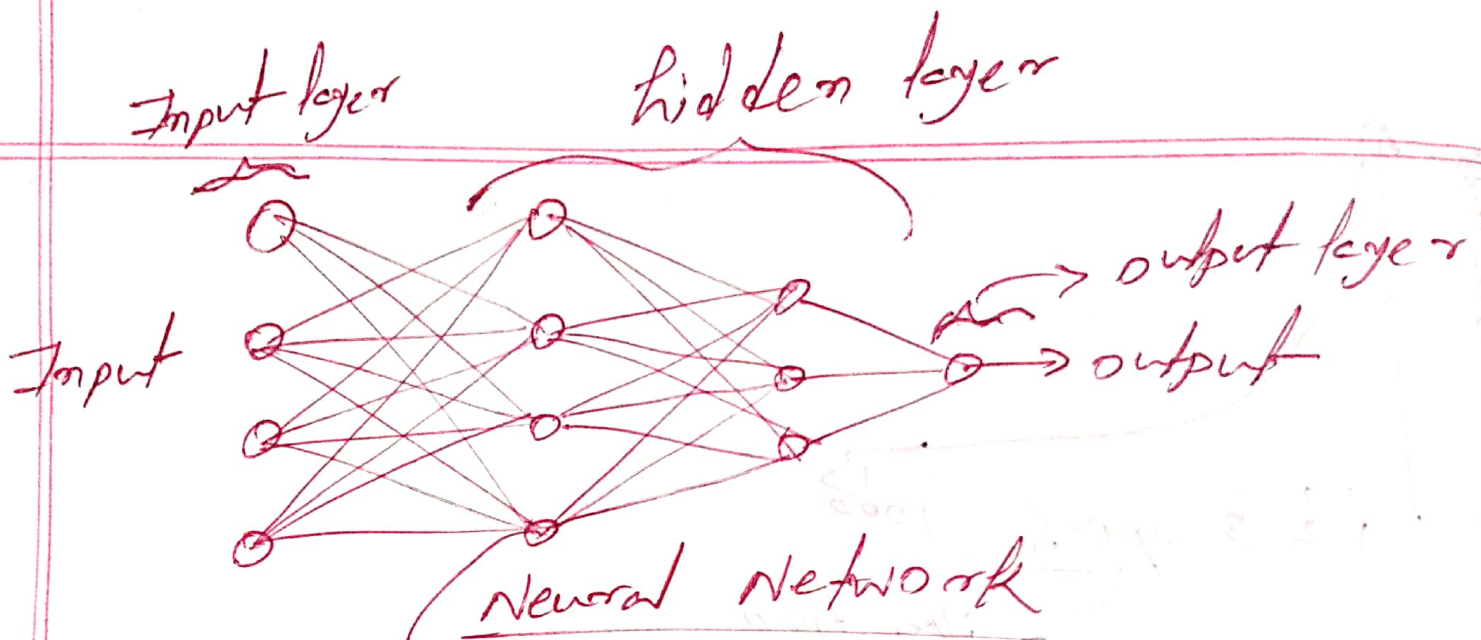 Input layer
hidden layer
output layer
Input
output
Neural Network